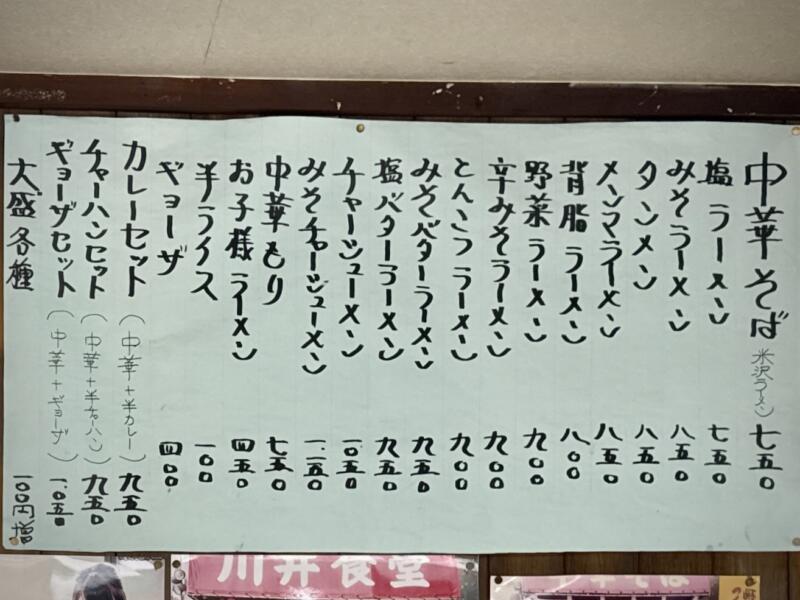 中華そば(米沢ラーメン) 七五〇
塩ラーメン 七五〇
みそラーメン 八五〇
タンメン 八五〇
メンマラーメン 八五〇
背脂ラーメン 八〇〇
野菜ラーメン 九〇〇
辛みそラーメン 九〇〇
とんこつラーメン 九〇〇
みそバターラーメン 九五〇
塩バターラーメン 九五〇
チャーシューメン 一〇五〇
みそチャーシューメン 一、一五〇
中華もり 七五〇
お子様ラーメン 四五〇
半ライス 一〇〇
ギョーザ 四〇〇
カレーセット(中華+半カレー) 九五〇
チャーハンセット(中華+半チャーハン) 九五〇
ギョーザセット(中華+ギョーザ) 一、〇五〇
大盛各種 一〇〇円増
川井食堂